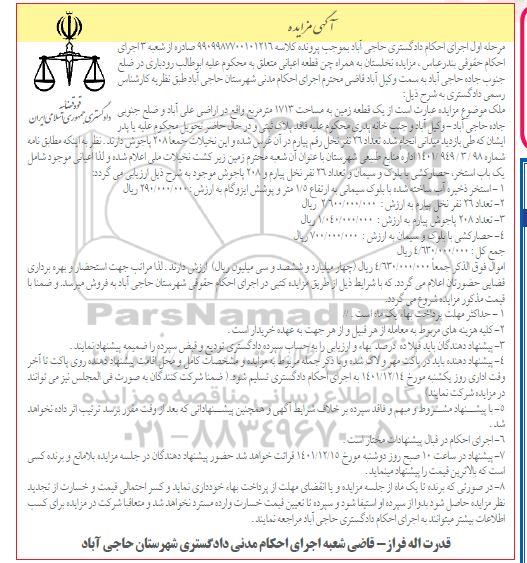 آگهی مزایده
قوه قضائیه
دادگستری جمهوری اسلامی ایران
مرحله اول اجرای احکام دادگستری حاجی آباد بموجب پرونده کلاسه ۹۹۰۹۹۸۷۷۰۰۱۰۱۲۱۶ صادره از شعبه ۳ اجرای
احکام حقوقی بندرعباس ، مزایده نخلستان به همراه چن قطعه اعیانی متعلق به محکوم علیه ابوطالب رودباری در ضلع
جنوب جاده حاجی آباد به سمت وکیل آباد قاضی محترم اجرای احکام مدنی شهرستان حاجی آباد طبق نظریه کارشناس
رسمی دادگستری به شرح ذیل:
ملک موضوع مزایده عبارت است از یک قطعه زمین به مساحت ۱۷۱۳ متر مربع واقع در اراضی علی آباد و ضلع جنوبی
جاده حاجی آباد - وکیل آباد و جنب خانه پدری محکوم علیه فاقد پلاک ثبتی و در حال حاضر تحویل محکوم علیه یا پدر
ایشان که طی بازدید میدانی انجام شده تعداد ۲۶ نفر نخل رقم پیارم در آن غرس شده و این نخیلات جمعا ۲۰۸ پاجوش دارند . نظر به اینکه مطابق نامه
شماره ۹۸ / ۳ / ۹۴۹ / ۱۴۰۱ اداره منابع طبیعی شهرستان با عنوان آن شعبه محترم زمین زیر کشت نخیلات ملی اعلام شده و لذا اعیانی موجود شامل
یک باب استخر، حصارکشی با بلوک و سیمان و تعداد ۲۶ نفر نخل پیارم و ۲۰۸ پاجوش موجود به شرح ذیل ارزیابی می گردد:
۱- استخر ذخیره آب ساخته شده با بلوک سیمانی به ارتفاع ۱/۵ متر و پوشش ایزوگام به ارزش : ۲۹۰/۰۰۰/۰۰۰ ریال
۲- تعداد ۲۶ نفر نخل پیارم به ارزش : ۲/۶۰۰/۰۰۰/۰۰۰ ریال
۳- تعداد ۲۰۸ پاجوش پیارم به ارزش : ۱/۰۴۰/۰۰۰/۰۰۰ ریال
۴- حصارکشی با بلوک و سیمان به ارزش : ۷۰۰/۰۰۰/۰۰۰ ریال
جمع کل : ۴/۶۳۰/۰۰۰/۰۰۰ ریال
اموال فوق الذکر جمعاً ۴/۶۳۰/۰۰۰/۰۰۰ ریال (چهار میلیارد و ششصد و سی میلیون ریال) ارزش دارند . لذا مراتب جهت استحضار و بهره برداری
قضایی حضورتان اعلام می گردد. که با شرایط ذیل از طریق مزایده کتبی در اجرای احکام حقوقی شهرستان حاجی آباد به فروش میرسد . و ضمنا با
قیمت مذکور مزایده شروع می گردد.
۱- حداکثر مهلت پرداخت بهاء یک ماه است . //
۲- کلیه هزینه های مربوط به معامله از هر قبیل و از هر جهت به عهده خریدار است .
۳- پیشنهاد دهندگان باید فیلاده درصد بهاء و ارزیابی را به حساب سپرده دادگستری تودیع و فیش سپرده را ضمیمه پیشنهاد نمایند .
۴- پیشنهاد دهنده باید در پاکت مهر و لاک شده و با ذکر جمله مربوط به مزایده و مشخصات کامل و محل اقامت پیشنهاد دهنده روی پاکت تا آخر
وقت اداری روز یکشنبه مورخ ۱۴۰۱/۱۲/۱۴ به اجرای احکام دادگستری تسلیم شود.( ضمنا شرکت کنندگان به صورت فی المجلس نیز می توانند
در مزایده شرکت نمایند)
۵- با پیشنهاد مشروط و مبهم و فاقد سپرده بر خلاف شرایط آگهی و همچنین پیشنهاداتی که بعد از وقت مقرر برسد ترتیب اثر داده نخواهد
شد .
۶- اجرای احکام در قبال پیشنهادات مختار است .
۷- پیشنهاد در ساعت ۱۰ صبح روز دوشنبه مورخ ۱۴۰۱/۱۲/۱۵ قرائت خواهد شد حضور پیشنهاد دهندگان در جلسه مزایده بلامانع و برنده کسی
است که بالاترین قیمت را پیشنهاد مینماید .
۸- در صورتی که برنده تا یک ماه از جلسه مزایده و یا انقضای مهلت از پرداخت بهاء خودداری نماید و کسر احتمالی قیمت و خسارت از تجدید
نظر مزایده حاصل شود بدوا از سپرده او استیفا شود و سپرده تا تعیین قیمت خسارت وارده مسترد نخواهد شد و متعاقبا شرکت در مزایده برای کسب
اطلاعات بیشتر میتوانند به اجرای احکام دادگستری حاجی آباد مراجعه نمایند .
قدرت اله فراز - قاضی شعبه اجرای احکام مدنی دادگستری شهرستان حاجی آباد
ParsNamadData
پایگاه اطلاع رسانی مناقصه و مزایده
۰۲۱-۸۸۳۴۹۶۷۰-۵